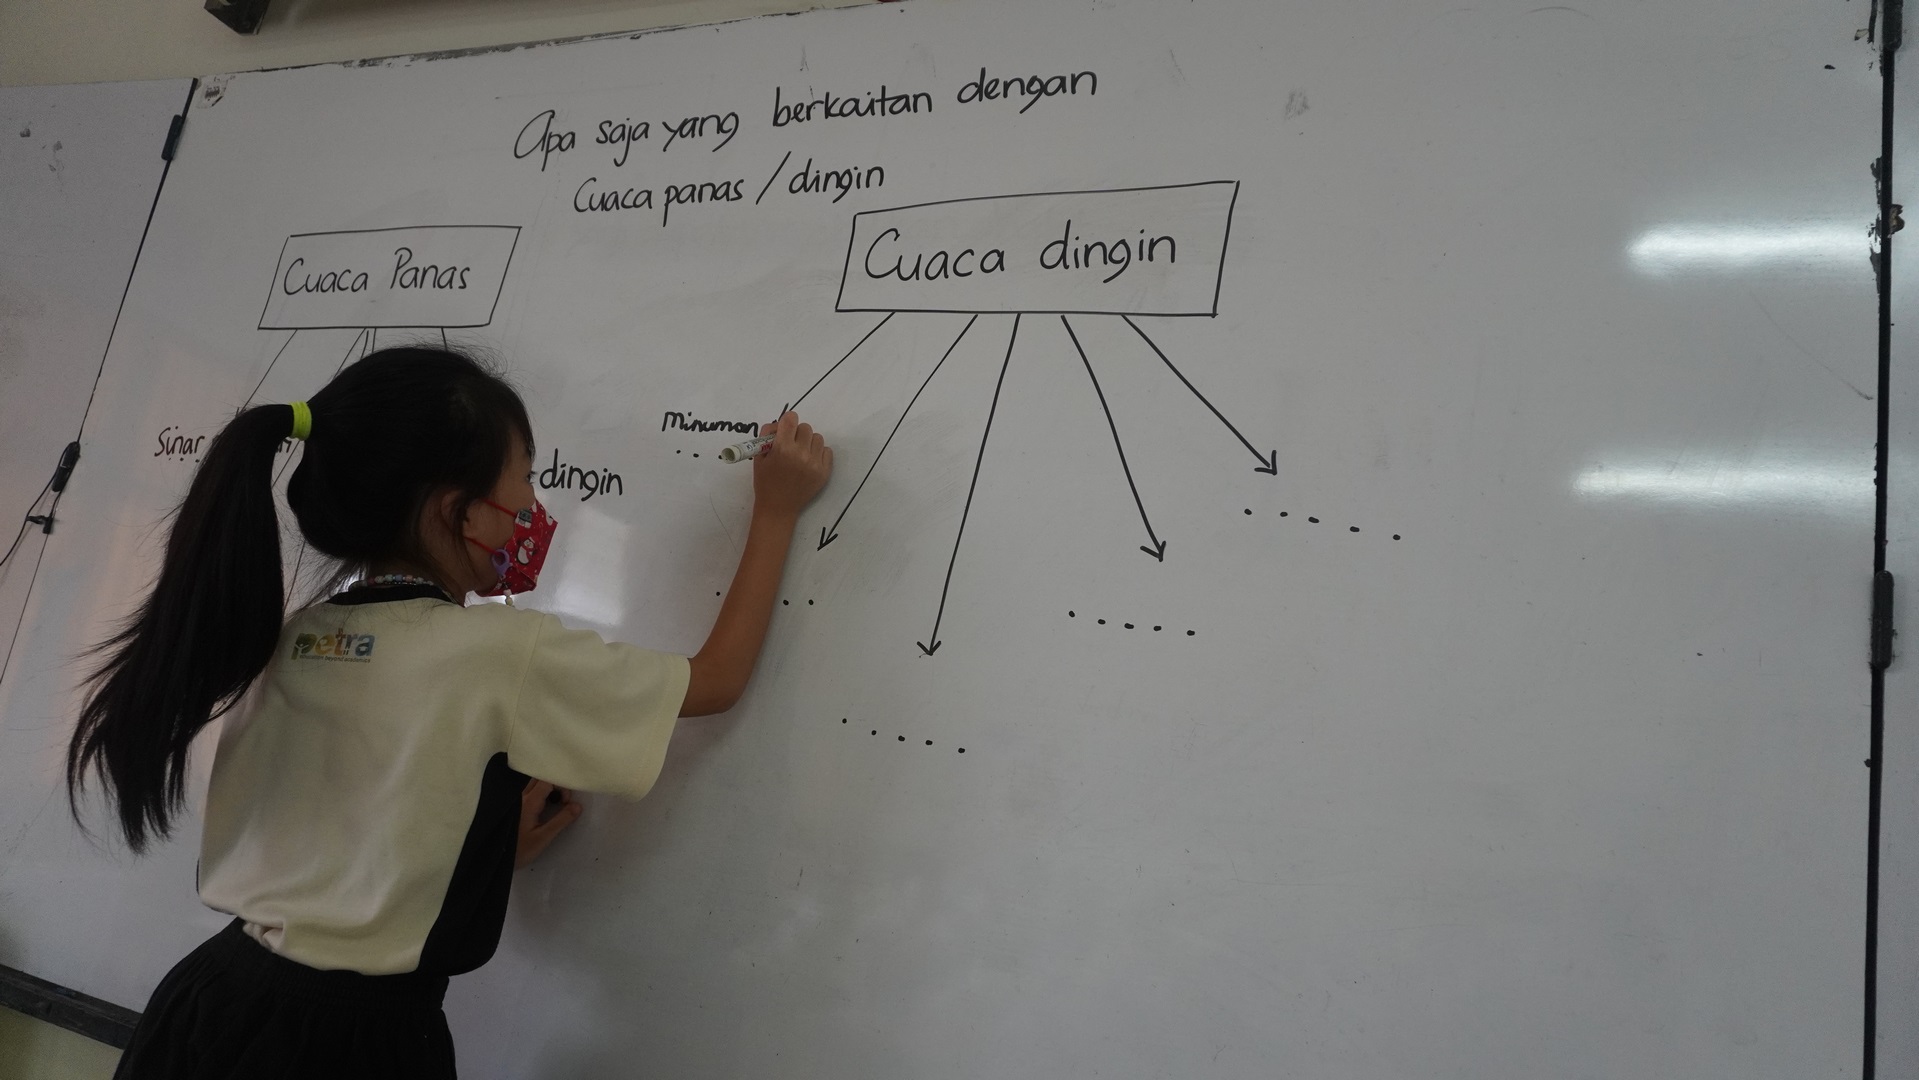 Apa saja yang berkaitan dengan
Cuaca panas / dingin
Cuaca Panas
Cuaca dingin
Sinar
dingin
Minuman
petra